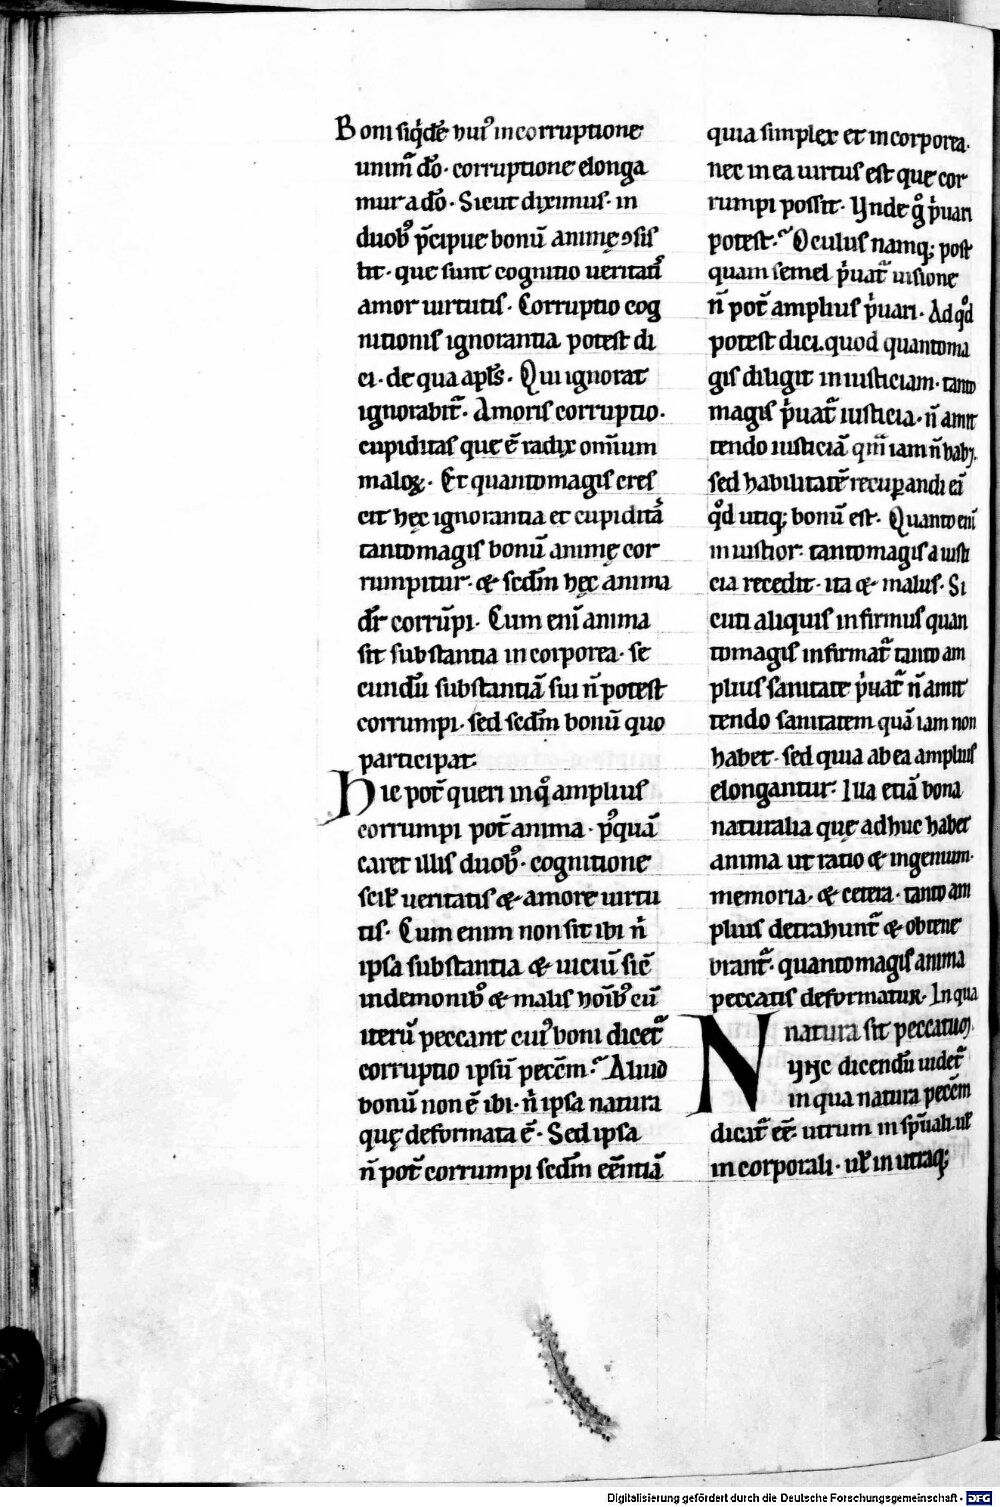 Boni siq̇dē huiꝰ incorruptione
unim̄ dō· corruptione elonga
mur a dō· Sicut diximus· in
duobꝰ p̄cipue bonū animę ꝯsis
tit· que sunt cognitio ueritatꝭ
amor uirtutis· Corruptio cog
nitionis ignorantia potest di
ci· de qua apl̄s· Qui ignorat
ignorabit᷑· Amoris corruptio·
cupiditas que ē radix omīum
maloꝝ· Et quantomagis cres
cit hęc ignorantia et cupiditaͥ
tantomagis bonū animę cor
rumpitur· & sc̄dm hęc anima
dr̄ corrūpi· Cum eni᷑ anima
sit substantia incorporea· se
cundū substantiā sui n̄ potest
corrumpi· sed sc̄dm bonū quo
participat·
Hic pot᷑ queri in qͦ amplius
corrumpi pot᷑ anima· pꝰquā
caret illis duobꝰ· cognitione
scił ueritatis & amore uirtu
tis· Cum enim non sit ibi nͥ
ipsa substantia & uiciū sic̄
in demonibꝰ & malis hōibꝰ cū
iterū peccant cuiꝰ boni dicet᷑
corruptio ipsū pecc̄m·᷑ Aliud
bonū non ē ibi· nͥ ipsa natura
quę deformata ē· Sed ipsa
n̄ pot᷑ corrumpi sc̄dm eēntiā
quia simplex et incorporea·
nec in ea uirtus est que cor
rumpi possit· Vnde gͦ pͥuari
potest·᷑ Oculus namq; post
quam semel pͥuat᷑ uisione
n̄ pot᷑ amplius pͥuari· Ad qͦd
potest dici. quod quantoma
gis diligit iniusticiam· tanto
magis pͥuat᷑ iusticia· n̄ amit
tendo iusticiā qm̄ iam n̄ habꝫ·
sed habilitatē recuꝑandi eā
qͦd utiq; bonū est· Quanto eni᷑
iniustior· tantomagis a iusti
cia recedit· ita & malus· Si
cuti aliquis infirmus quan
tomagis infirmat᷑ tanto am
plius sanitate pͥuat᷑ n̄ amit
tendo sanitatem quā iam non
habet· sed quia ab ea amplius
elongantur· Ina etiā bona
naturalia quę adhuc habet
anima ut ratio & ingenium·
memoria· & cetera· tanto am
plius detrahunt᷑ & obtene
brant᷑· quantomagis anima
peccatis deformatur· In qua
natura sit peccatum·
NVNC dicendū uidet᷑
in qua natura pecc̄m
dicat᷑ eē· utrum in sp̄uali· uł
in corporali· uł in utraq;
Digitalisierung gefördert durch die Deutsche Forschungsgemeinschaft - DFG